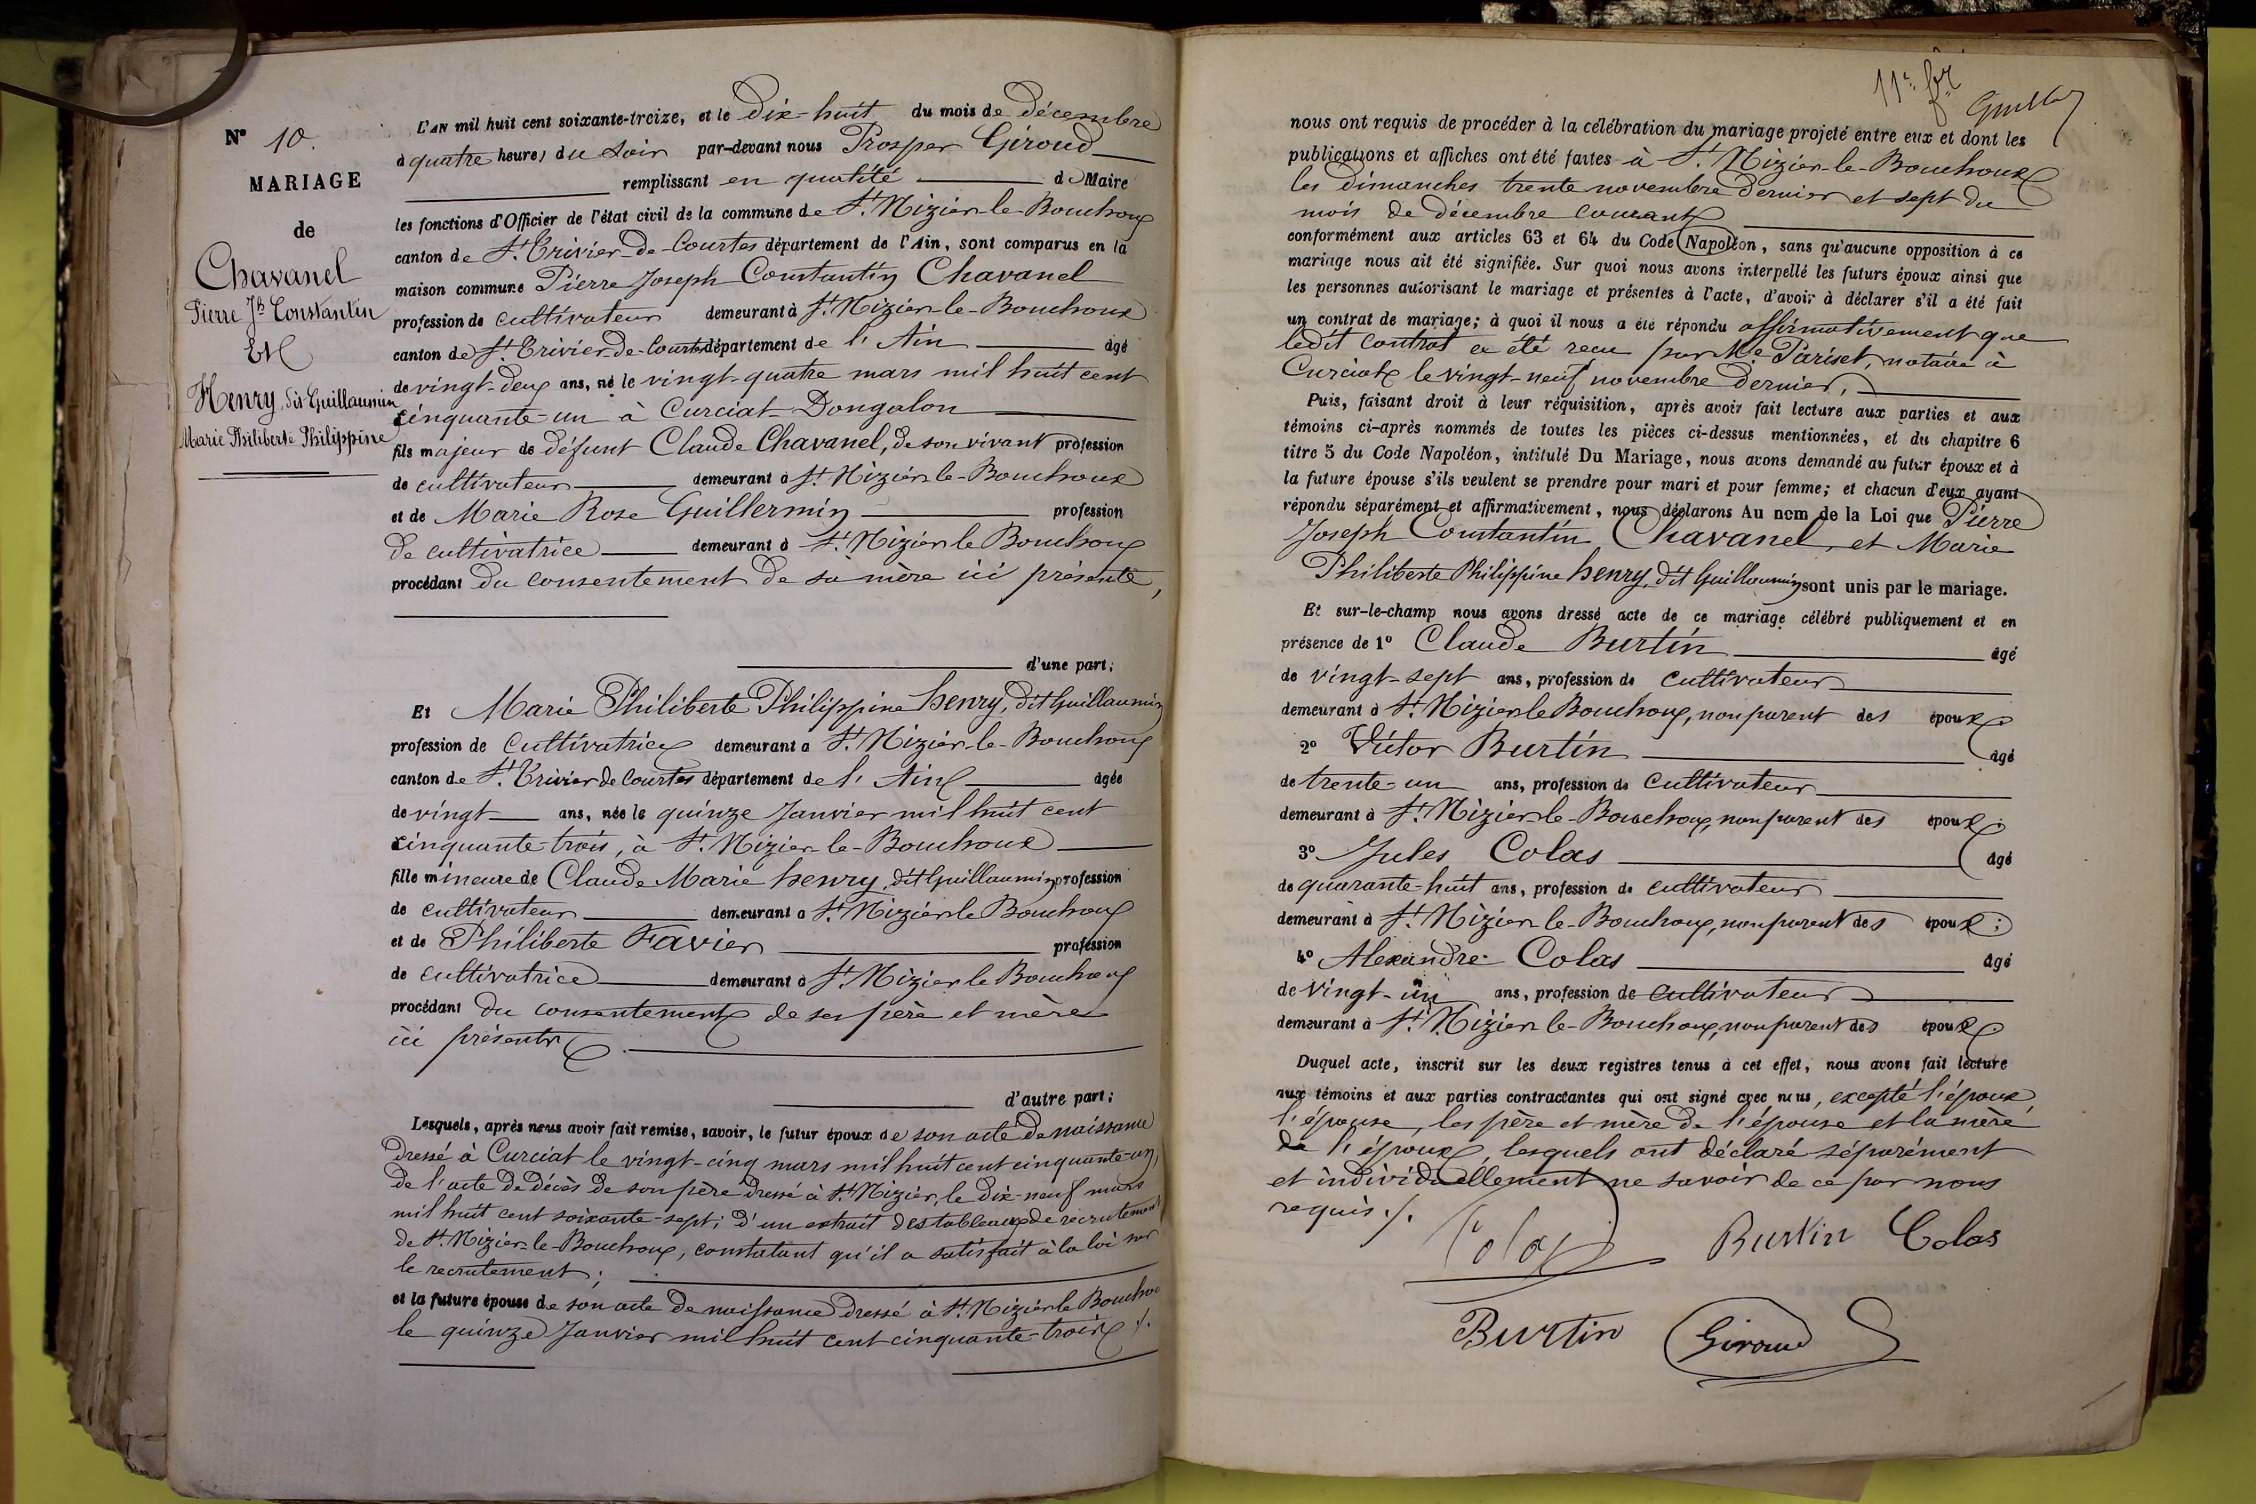 N° 10.
MARIAGE
de
Chavanel
Pierre Jh Constantin
Et
Henry, dit Guillaumin
Marie Philiberte Philippine
L'AN mil huit cent soixante-treize, et le Dix-huit du mois de décembre
à quatre heures du soir par-devant nous Prosper Giroud
remplissant en qualité de Maire
les fonctions d'Officier de l'état civil de la commune de St. Nizier-le-Bouchoux
canton de St. Trivier-de-Courtes département de l'Ain, sont comparus en la
maison commune Pierre Joseph Constantin Chavanel
profession de cultivateur demeurant à St. Nizier-le-Bouchoux
canton de St. Trivier-de-Courtes département de l'Ain âgé
de vingt-deux ans, né le vingt-quatre mars mil huit cent
cinquante-un à Curciat-Dongalon
fils majeur de défunt Claude Chavanel, de son vivant profession
de cultivateur demeurant à St. Nizier-le-Bouchoux
et de Marie Rose Guillermin profession
de cultivatrice demeurant à St. Nizier le Bouchoux
procédant du consentement de sa mère ici présente,
d'une part;
Et Marie Philiberte Philippine henry, dit Guillaumin
profession de Cultivatrice demeurant à St. Nizier-le-Bouchoux
canton de St. Trivier de Courtes département de l'Ain âgée
de vingt ans, née le quinze Janvier mil huit cent
cinquante-trois, à St. Nizier-le-Bouchoux
fille mineure de Claude Marie henry, dit Guillaumin profession
de cultivateur demeurant à St. Nizier le Bouchoux
et de Philiberte Favier profession
de cultivatrice demeurant à St. Nizier le Bouchoux
procédant du consentement de ses père et mère
ici présents.
d'autre part;
Lesquels, après nous avoir fait remise, savoir, le futur époux de son acte de naissance
dressé à Curciat le vingt-cinq mars mil huit cent cinquante-un,
de l'acte de décès de son père dressé à St. Nizier, le dix-neuf mars
mil huit cent soixante-sept; d'un extrait des tableaux de recrutement
de St. Nizier-le-Bouchoux, constatant qu'il a satisfait à la loi sur
le recrutement;
et la future épouse de son acte de naissance dressé à St. Nizier le Bouchoux
le quinze Janvier mil huit cent cinquante-trois ./.
11e
nous ont requis de procéder à la célébration du mariage projeté entre eux et dont les
publications et affiches ont été faites à St. Nizier-le-Bouchoux
les dimanches trente novembre dernier et sept du
mois de décembre courant
conformément aux articles 63 et 64 du Code Napoléon, sans qu'aucune opposition à ce
mariage nous ait été signifiée. Sur quoi nous avons interpellé les futurs époux ainsi que
les personnes autorisant le mariage et présentes à l'acte, d'avoir à déclarer s'il a été fait
un contrat de mariage; à quoi il nous a été répondu affirmativement que
ledit contrat a été reçu par Me. Pariset, notaire à
Curciat le vingt-neuf novembre dernier,
Puis, faisant droit à leur réquisition, après avoir fait lecture aux parties et aux
témoins ci-après nommés de toutes les pièces ci-dessus mentionnées, et du chapitre 6
titre 5 du Code Napoléon, intitulé Du Mariage, nous avons demandé au futur époux et à
la future épouse s'ils veulent se prendre pour mari et pour femme; et chacun d'eux ayant
répondu séparément et affirmativement, nous déclarons Au nom de la Loi que Pierre
Joseph Constantin Chavanel et Marie
Philiberte Philippine henry, dit Guillaumin sont unis par le mariage.
Et sur-le-champ nous avons dressé acte de ce mariage célébré publiquement et en
présence de 1° Claude Burtin âgé
de vingt-sept ans, profession de cultivateur
demeurant à St. Nizier le Bouchoux, non parent des époux
2° Victor Burtin âgé
de trente-un ans, profession de cultivateur
demeurant à St. Nizier-le-Bouchoux, non parent des époux;
3° Jules Colas âgé
de quarante-huit ans, profession de cultivateur
demeurant à St. Nizier-le-Bouchoux, non parent des époux;
4° Alexandre Colas âgé
de vingt-un ans, profession de cultivateur
demeurant à St. Nizier-le-Bouchoux, non parent des époux
Duquel acte, inscrit sur les deux registres tenus à cet effet, nous avons fait lecture
aux témoins et aux parties contractantes qui ont signé avec nous, excepté l'époux,
l'épouse, les père et mère de l'épouse et la mère
de l'époux, lesquels ont déclaré séparément
et individuellement ne savoir de ce par nous
requis ./.
Colas Burtin Colas
Burtin Giroud